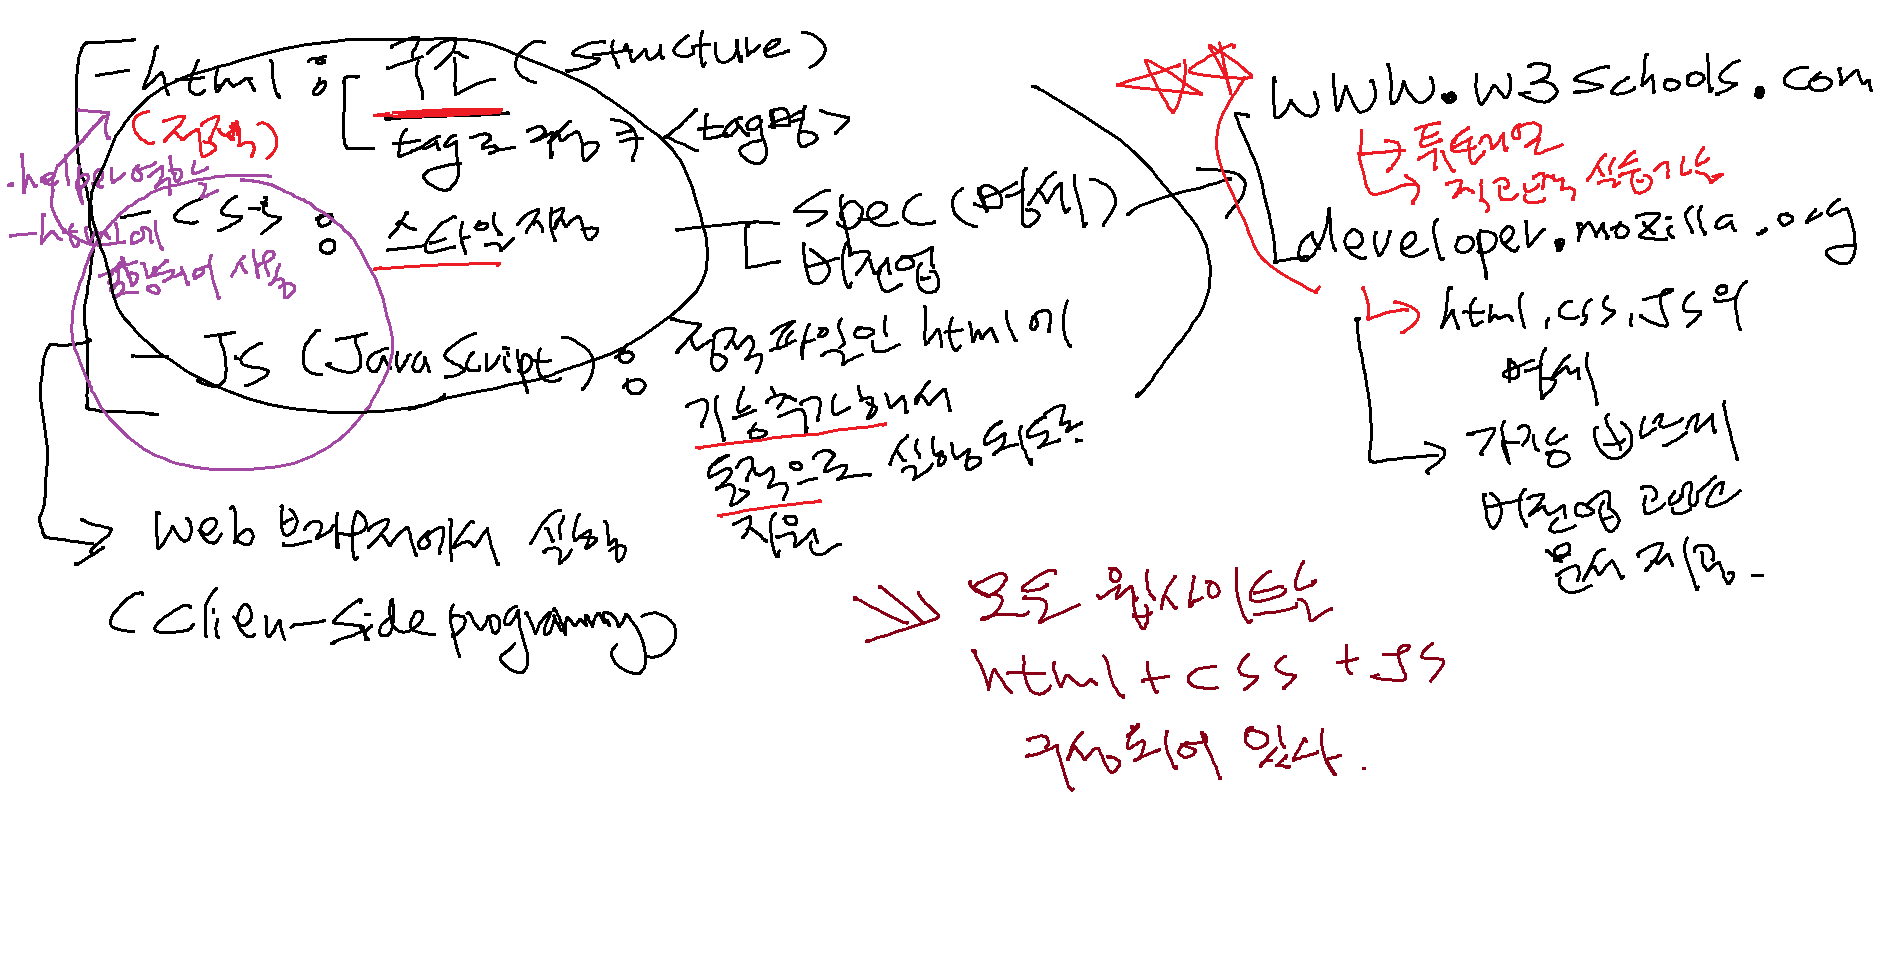 - html : 구조 (structure)
(정적)
tag로 구성 <tag명>
.helper역할
- html에
포함되어 사용
- css : 스타일 지정
spec (명세)
버전업
- JS (JavaScript) : 정적 파일인 html에
기능추가해서
동적으로 실행되도록
지원
web 브라우저에서 실행
(Clien-side programming)
www.w3schools.com
튜토리얼
직관적 실습가능
developer.mozilla.org
html, css, JS의
명세
기능 및
버전업 관련
문서 제공.
모든 웹사이트는
html + css + JS
구성되어 있다.